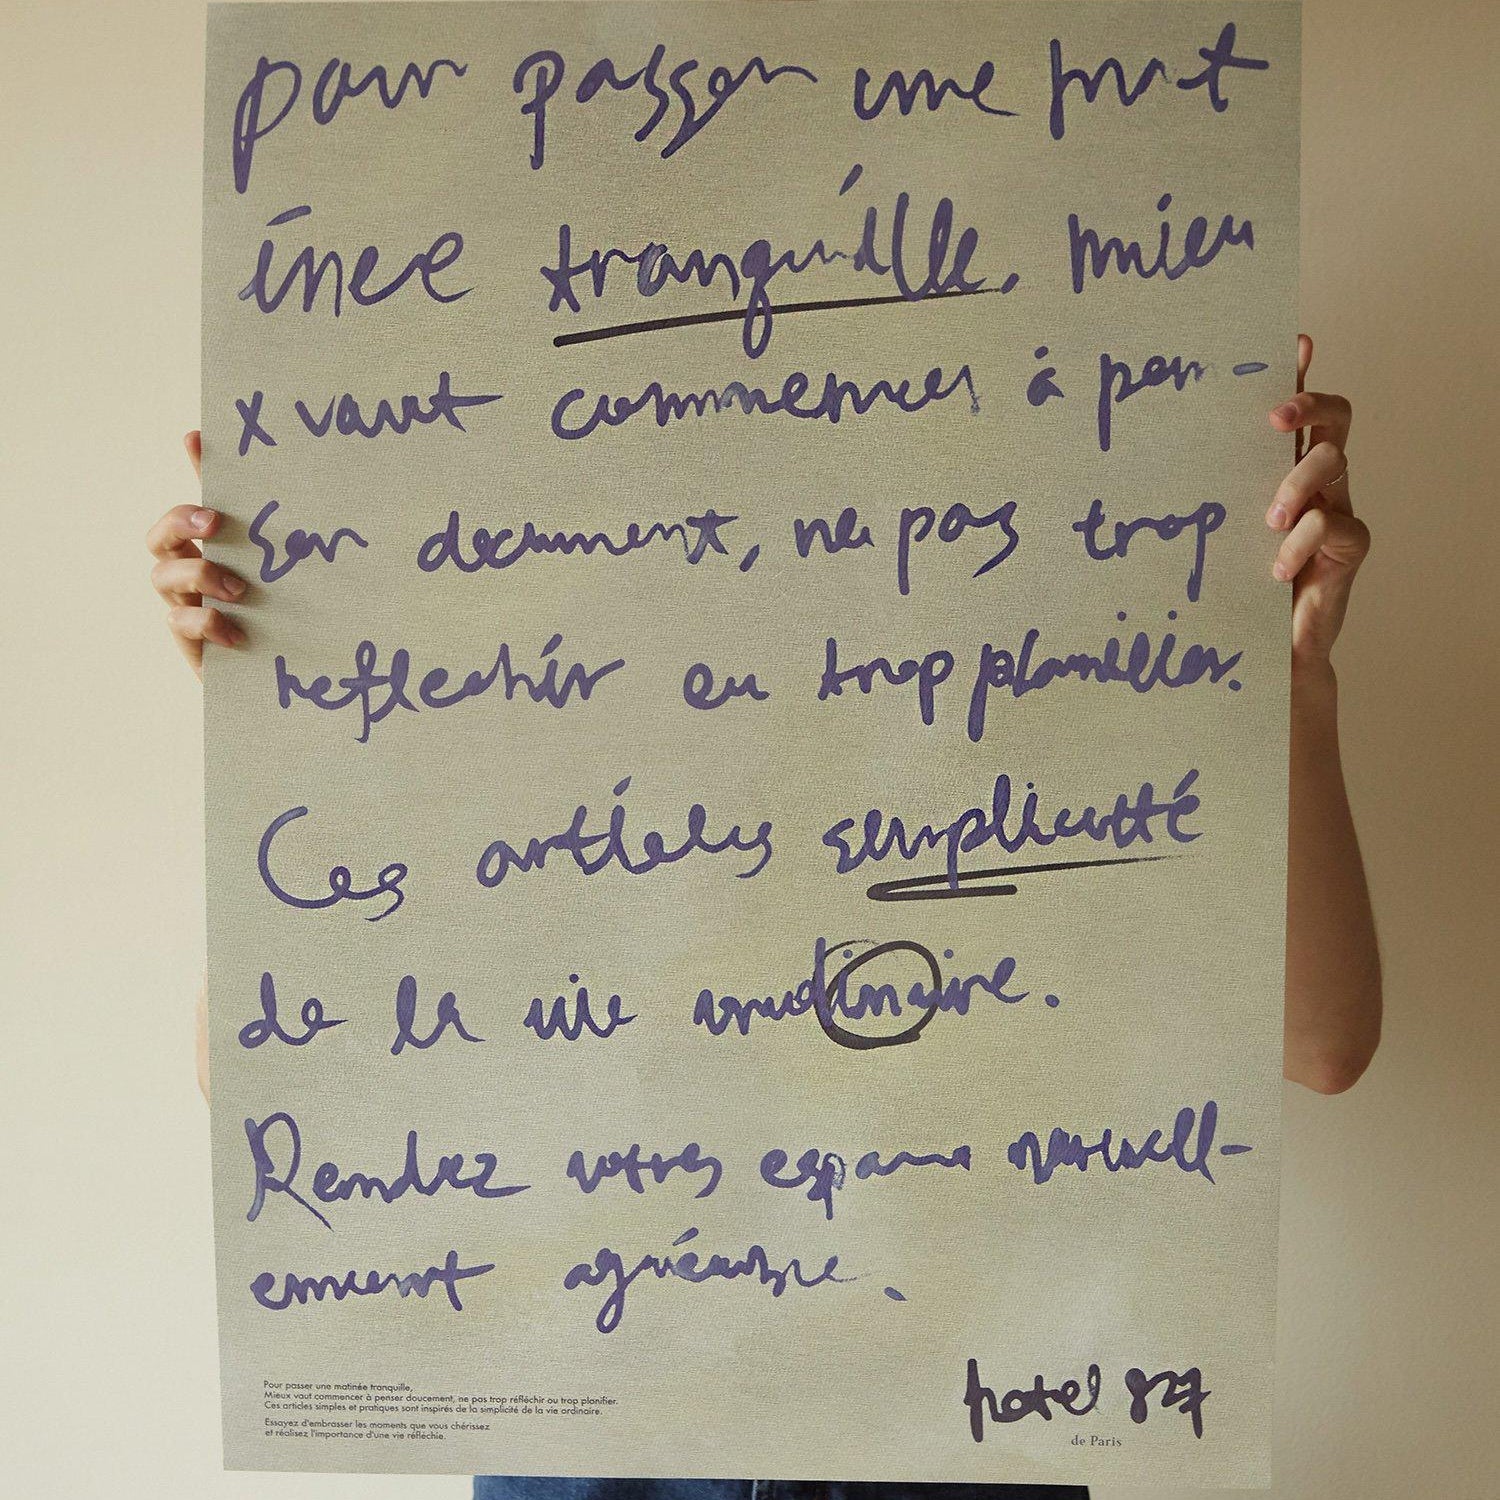 pour passer une mat
inée tranquille. mieu
x vaut commencer à pen-
ser document, ne pas trop
reflechir ou trop planifier.
Ces articles simplicité
de la vie ordinaire.
Rendez votres espace naturell-
ement agréable.
Pour passer une matinée tranquille,
Mieux vaut commencer à penser doucement, ne pas trop réfléchir ou trop planifier.
Ces articles simples et pratiques sont inspirés de la simplicité de la vie ordinaire.
Essayez d'embrasser les moments que vous chérissez
et réalisez l'importance d'une vie réfléchie.
hotel 827
de Paris